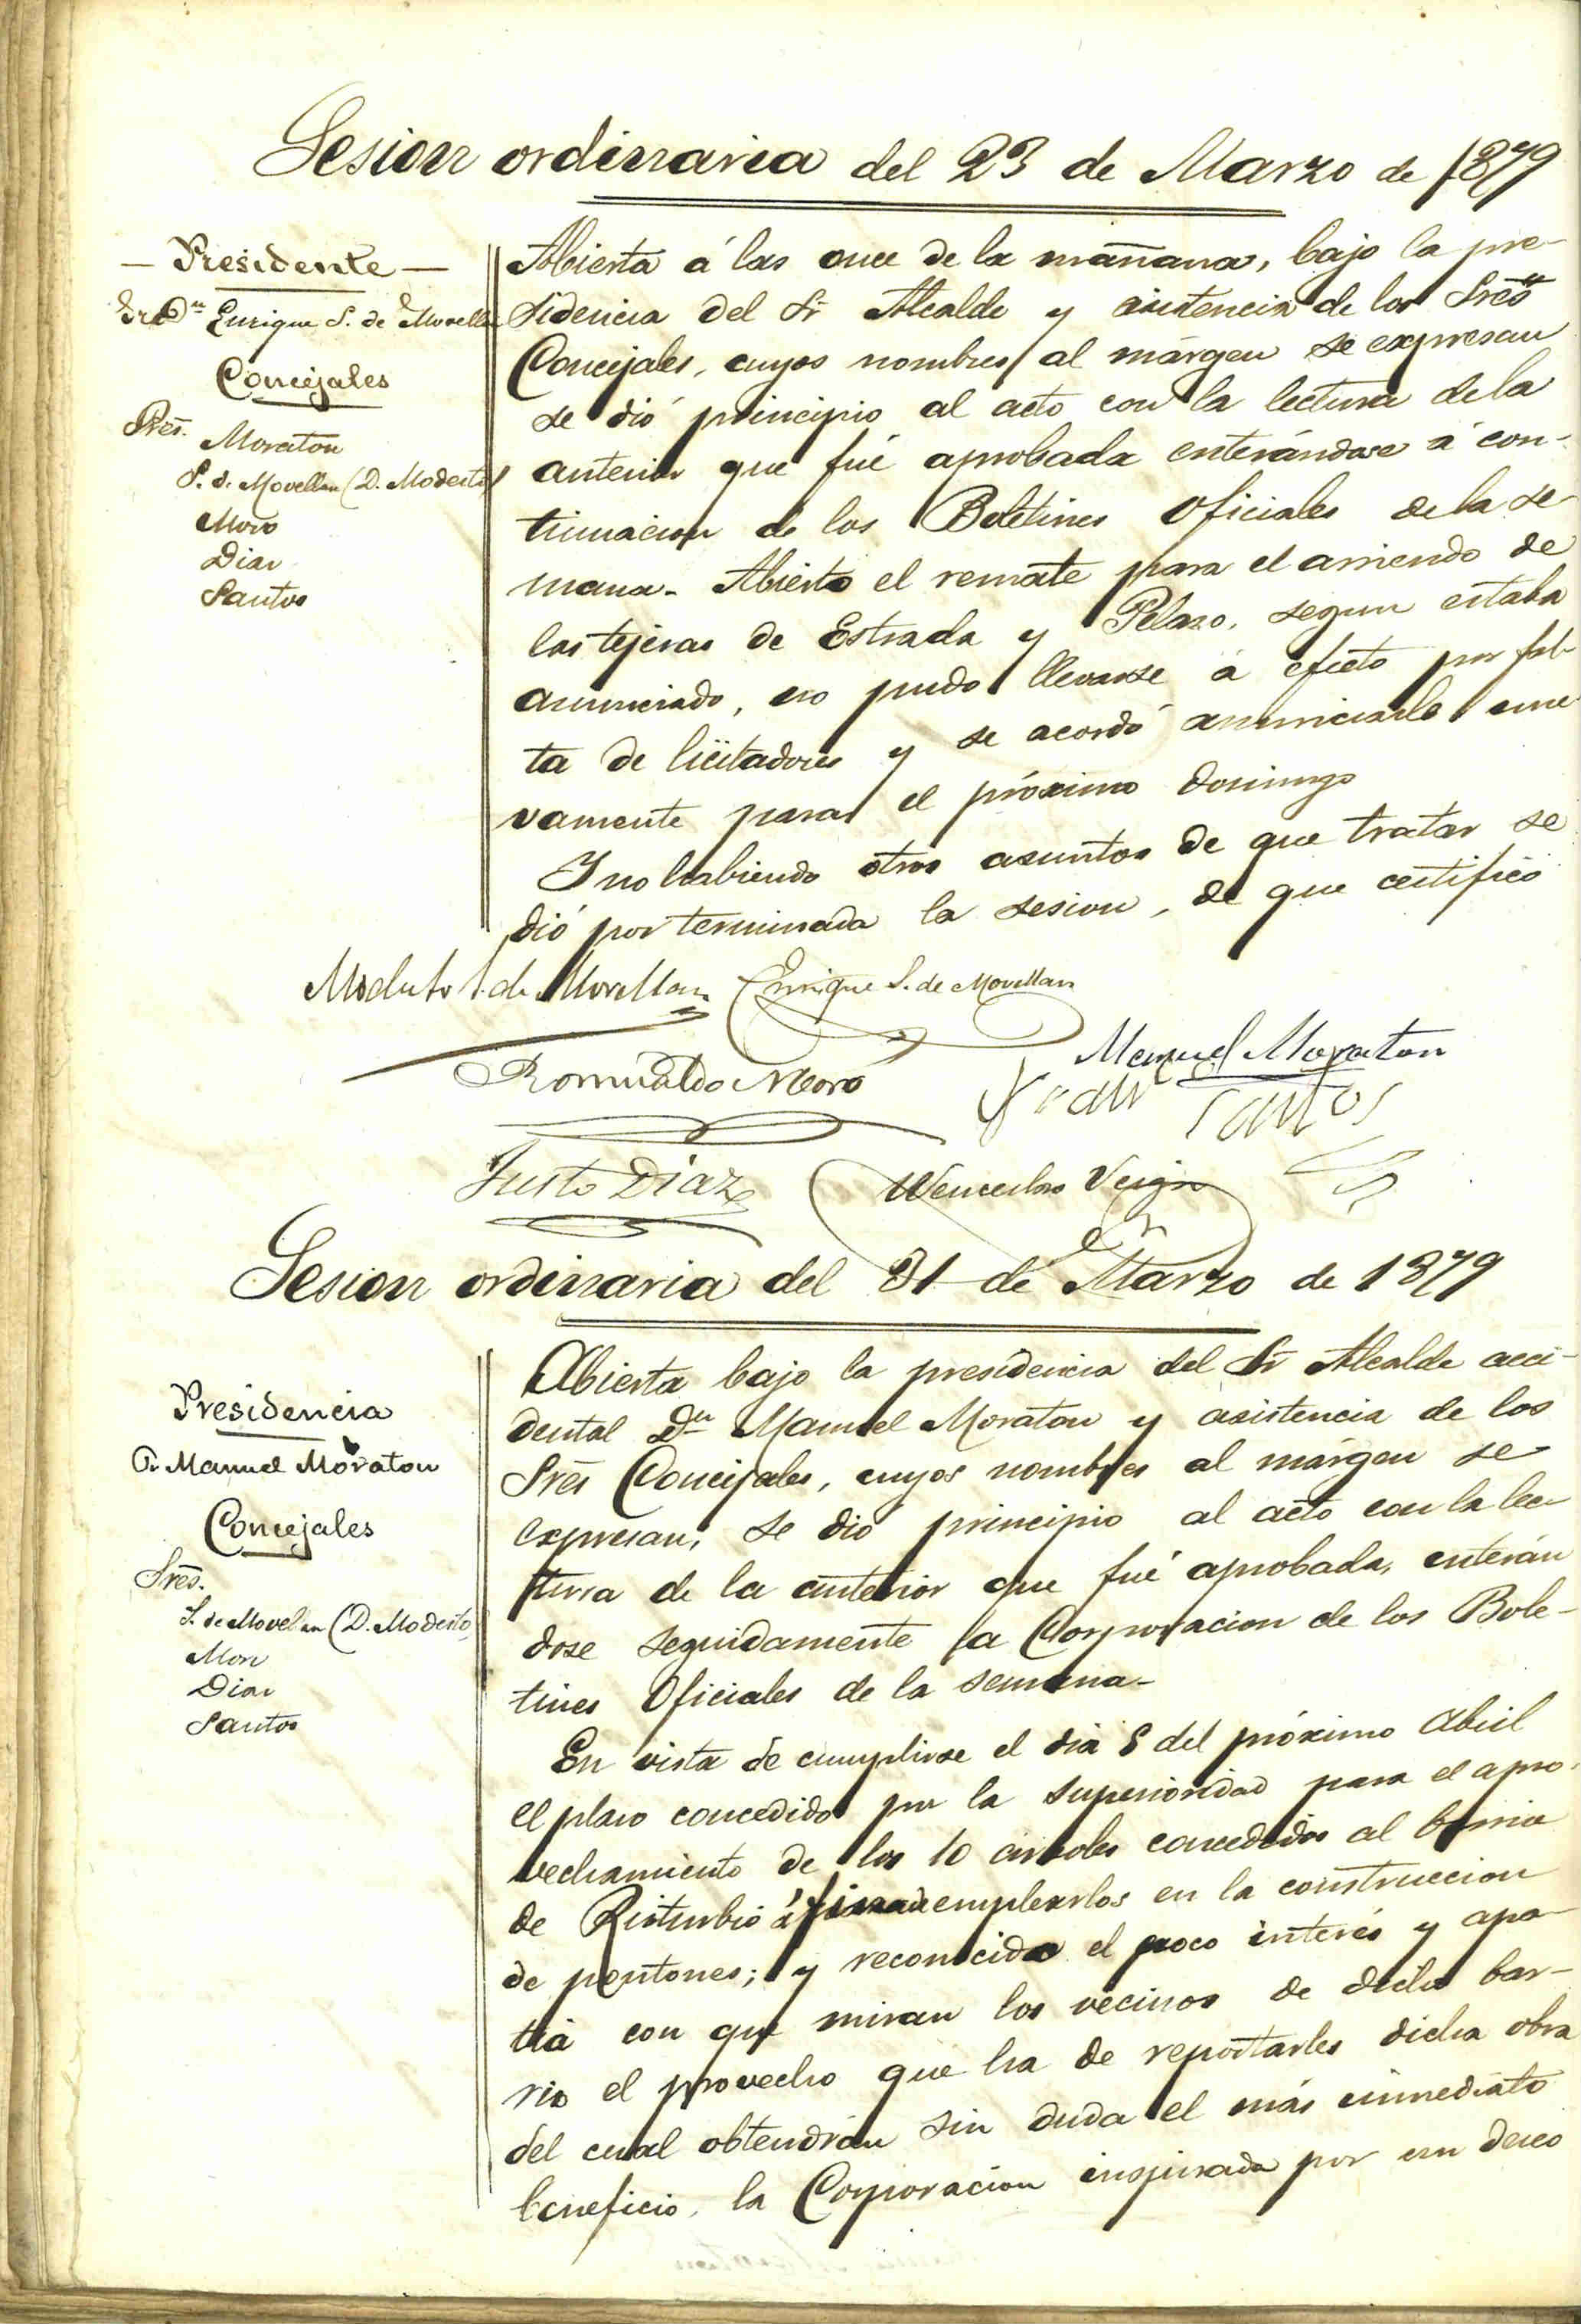 Sesion ordinaria del 23 de Marzo de 1879
— Presidente —
Sr. Dn Enrique S. de Movellan
Concejales
Sres.
Moraton
S. de Movellan (D. Modesto)
Moro
Diaz
Santos
Abierta á las once de la mañana, bajo la pre-
sidencia del Sr Alcalde y asistencia de los Sres
Concejales, cuyos nombres al márgen se expresan
se dió principio al acto con la lectura de la
anterior que fué aprobada enterándose á con-
tinuacion de los Boletines Oficiales de la se-
mana. Abierto el remate para el arriendo de
las tejeras de Estrada y Pelazo, segun estaba
anunciado, no pudo llevarse á efecto por fal-
ta de licitadores y se acordó anunciarlo nue
vamente para el próximo domingo
Y no habiendo otros asuntos de que tratar se
dió por terminada la sesion, de que certifico
Modesto S. de Movellan Enrique S. de Movellan
Romualdo Moro
Manuel Moraton
Santos
Justo Diaz
Wenceslao Veiga
Sesion ordinaria del 31 de Marzo de 1879
Presidencia
Dn Manuel Moraton
Concejales
Sres.
S. de Movellan (D. Modesto)
Moro
Diaz
Santos
Abierta bajo la presidencia del Sr Alcalde acci-
dental Dn Manuel Moraton y asistencia de los
Sres Concejales, cuyos nombres al márgen se
expresan, se dió principio al acto con la lec-
tura de la anterior que fué aprobada, enterán
dose seguidamente la Corporacion de los Bole-
tines Oficiales de la semana.
En vista de cumplirse el dia 8 del próximo Abril
el plazo concedido por la superioridad para el apro-
vechamiento de los 10 arboles concedidos al barrio
de Risturbio á fin de emplearlos en la construccion
de pontones; y reconocido el poco interés y apa-
tia con que miran los vecinos de dicho bar-
rio el provecho que ha de reportarles dicha obra
del cual obtendrán sin duda el más inmediato
beneficio, la Corporacion inspirada por un deseo